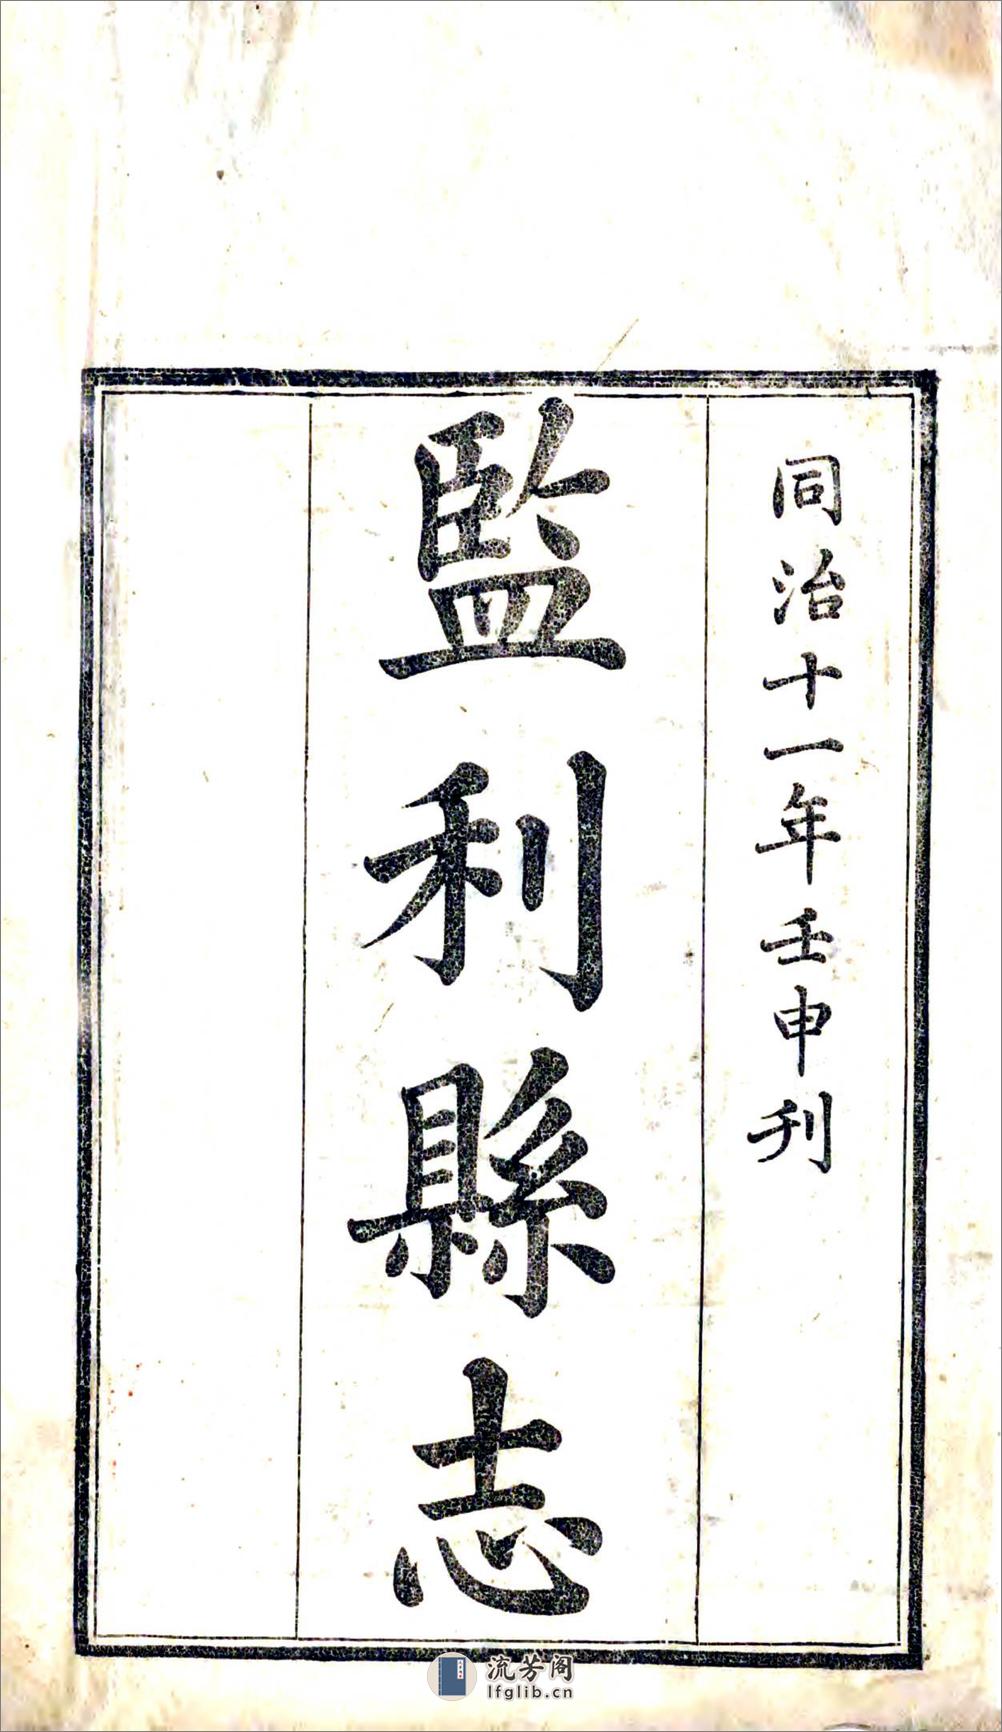 同治十一年壬申刋
監利縣志
流芳阁
lfglib.cn